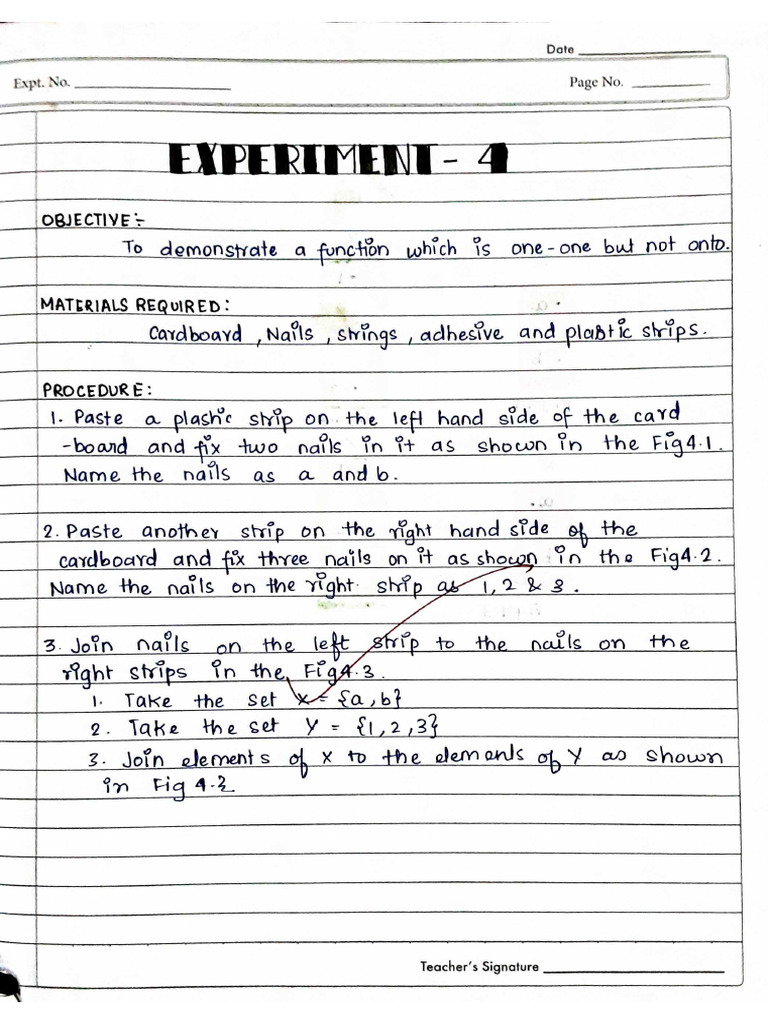 Date
Expt. No.
Page No.
EXPERIMENT - 4
OBJECTIVE :-
To demonstrate a function which is one-one but not onto.
MATERIALS REQUIRED :
Cardboard , Nails , strings , adhesive and plastic strips.
PROCEDURE :
1. Paste a plastic strip on the left hand side of the card
-board and fix two nails in it as shown in the Fig 4.1.
Name the nails as a and b.
2. Paste another strip on the right hand side of the
cardboard and fix three nails on it as shown in the Fig 4.2.
Name the nails on the right strip as 1, 2 & 3.
3. Join nails on the left strip to the nails on the
right strips in the Fig 4.3.
1. Take the set X = {a, b}
2. Take the set Y = {1, 2, 3}
3. Join elements of X to the elements of Y as shown
in Fig 4.3.
Teacher's Signature